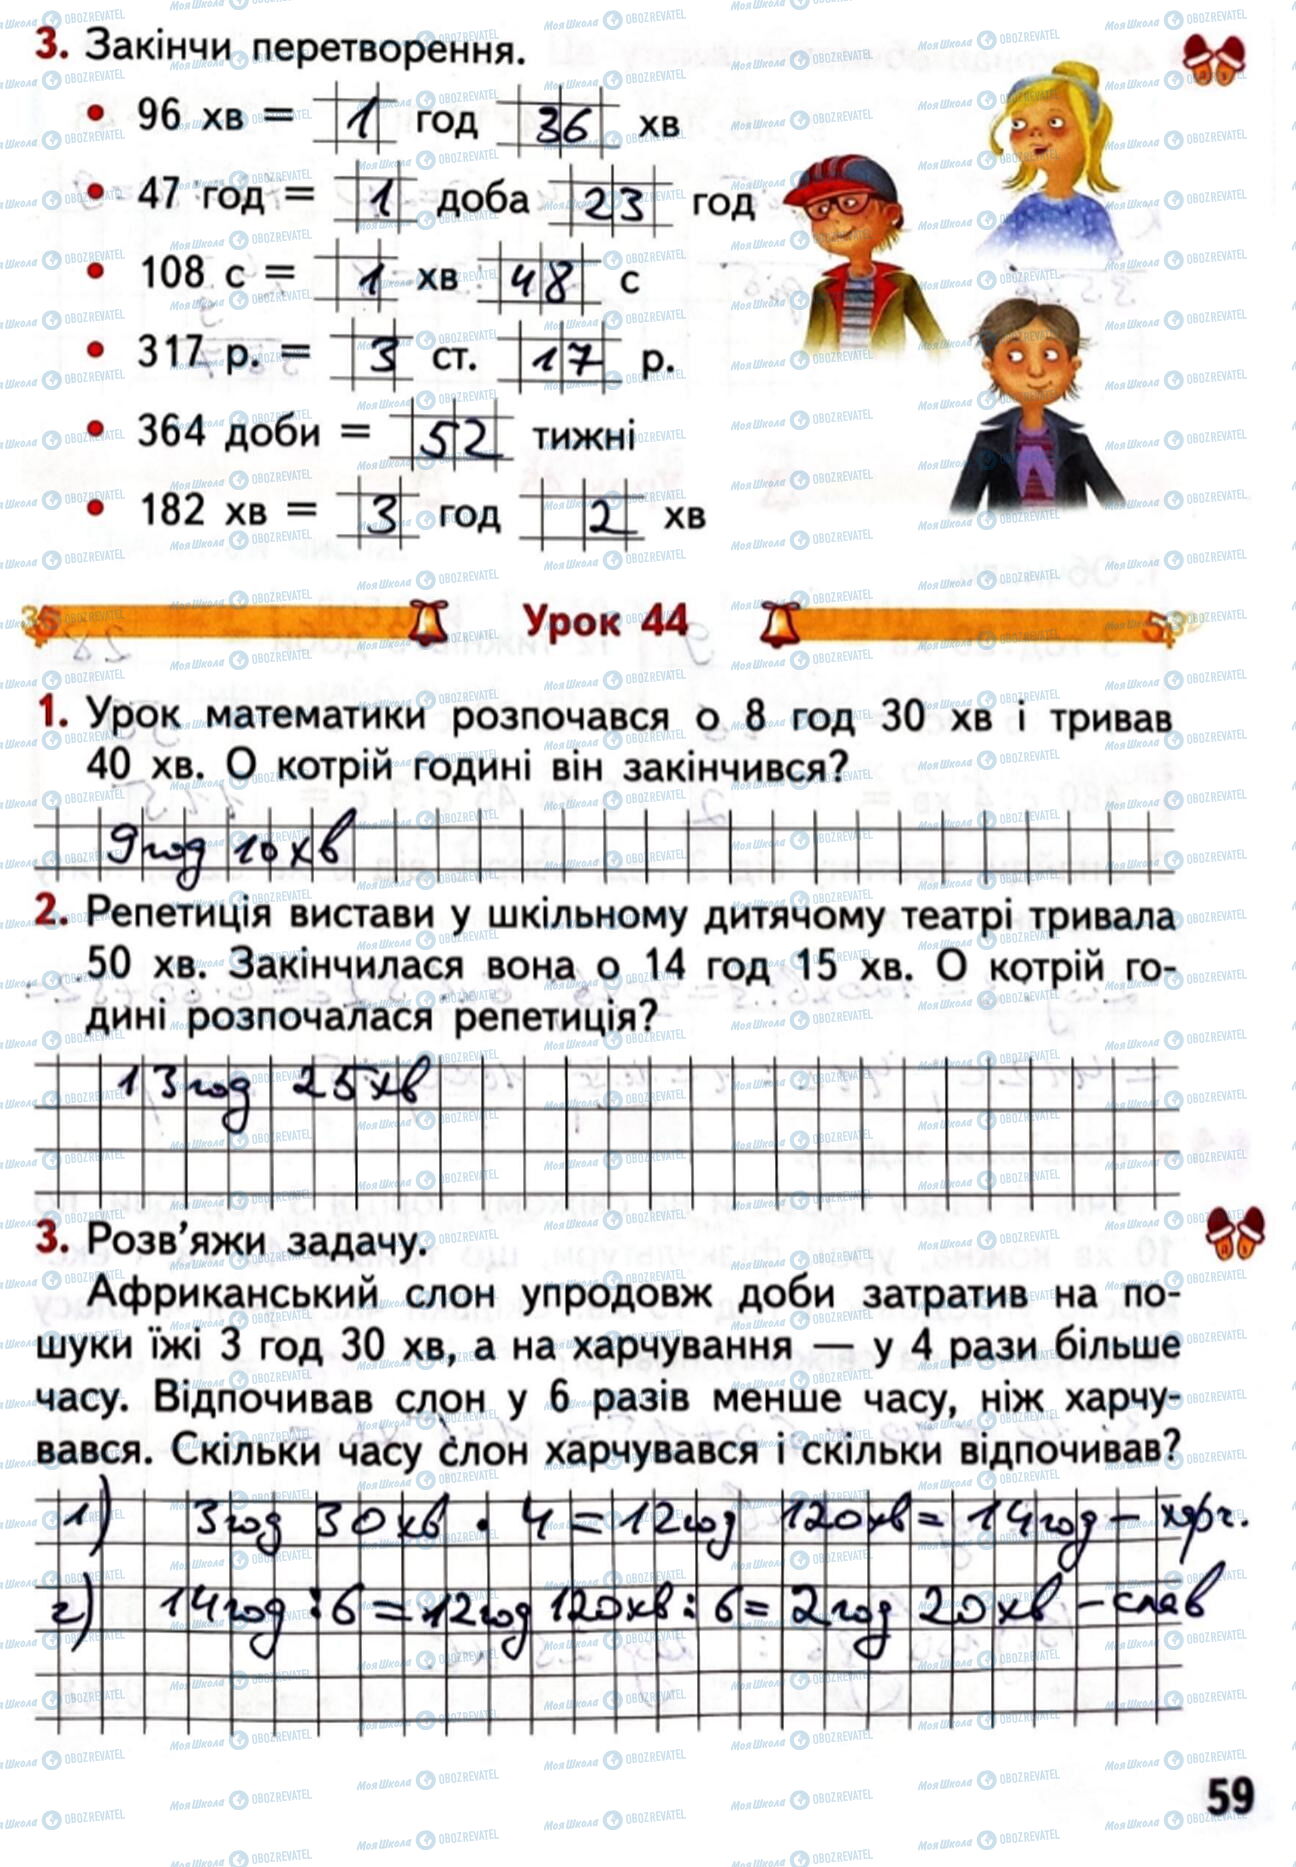 3. Закінчи перетворення.
• 96 хв = 1 год 36 хв
• 47 год = 1 доба 23 год
• 108 с = 1 хв 48 с
• 317 р. = 3 ст. 17 р.
• 364 доби = 52 тижні
• 182 хв = 3 год 2 хв
Урок 44
1. Урок математики розпочався о 8 год 30 хв і тривав
40 хв. О котрій годині він закінчився?
9 год 10 хв
2. Репетиція вистави у шкільному дитячому театрі тривала
50 хв. Закінчилася вона о 14 год 15 хв. О котрій го-
дині розпочалася репетиція?
13 год 25 хв
3. Розв’яжи задачу.
Африканський слон упродовж доби затратив на по-
шуки їжі 3 год 30 хв, а на харчування — у 4 рази більше
часу. Відпочивав слон у 6 разів менше часу, ніж харчу-
вався. Скільки часу слон харчувався і скільки відпочивав?
1) 3 год 30 хв · 4 = 12 год 120 хв = 14 год – харч.
2) 14 год : 6 = 12 год 120 хв : 6 = 2 год 20 хв – спав
59
МояШкола OBOZREVATEL